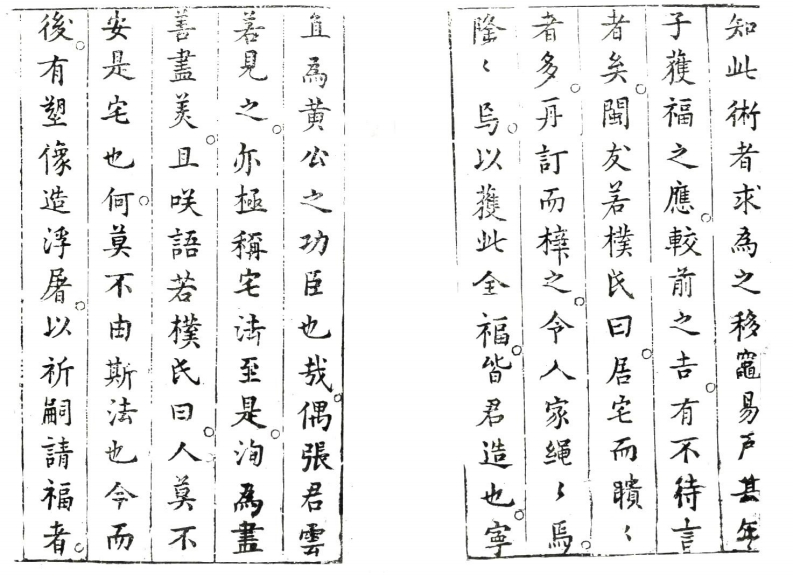 知此術者求為之移竈易戶甚年
子獲福之應。較前之吉。有不待言
者矣。閩友若樸氏曰。居宅而瞶〻
者多。再訂而榟之。令人家繩〻焉。
隆〻焉。以獲此全福。皆君造也。寧
直為黃公之功臣也哉。偶張君雲
若見之。亦極稱宅法至是。洵為盡
善盡美。且咲語若樸氏曰。人莫不
安是宅也。何莫不由斯法也今而
後。有塑像造浮屠。以祈嗣請福者。